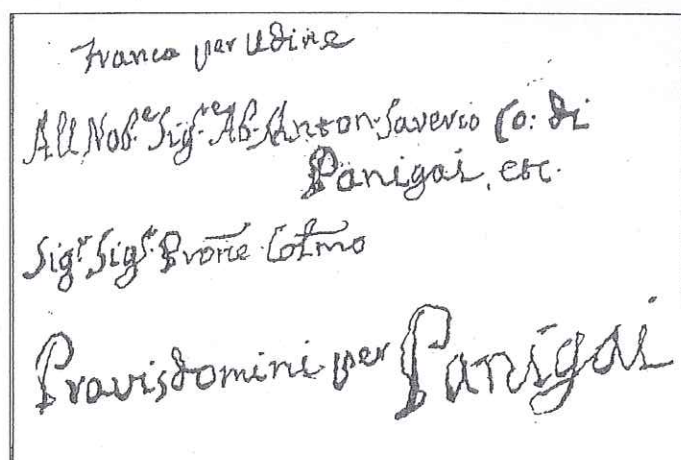 Franca per Udine
All Nob.e Sig.re Ab. Anton. Saverio Co: di
Panigai, etc.
Sig.r Sig.r Prone Colmo
Pravisdomini per Panigai